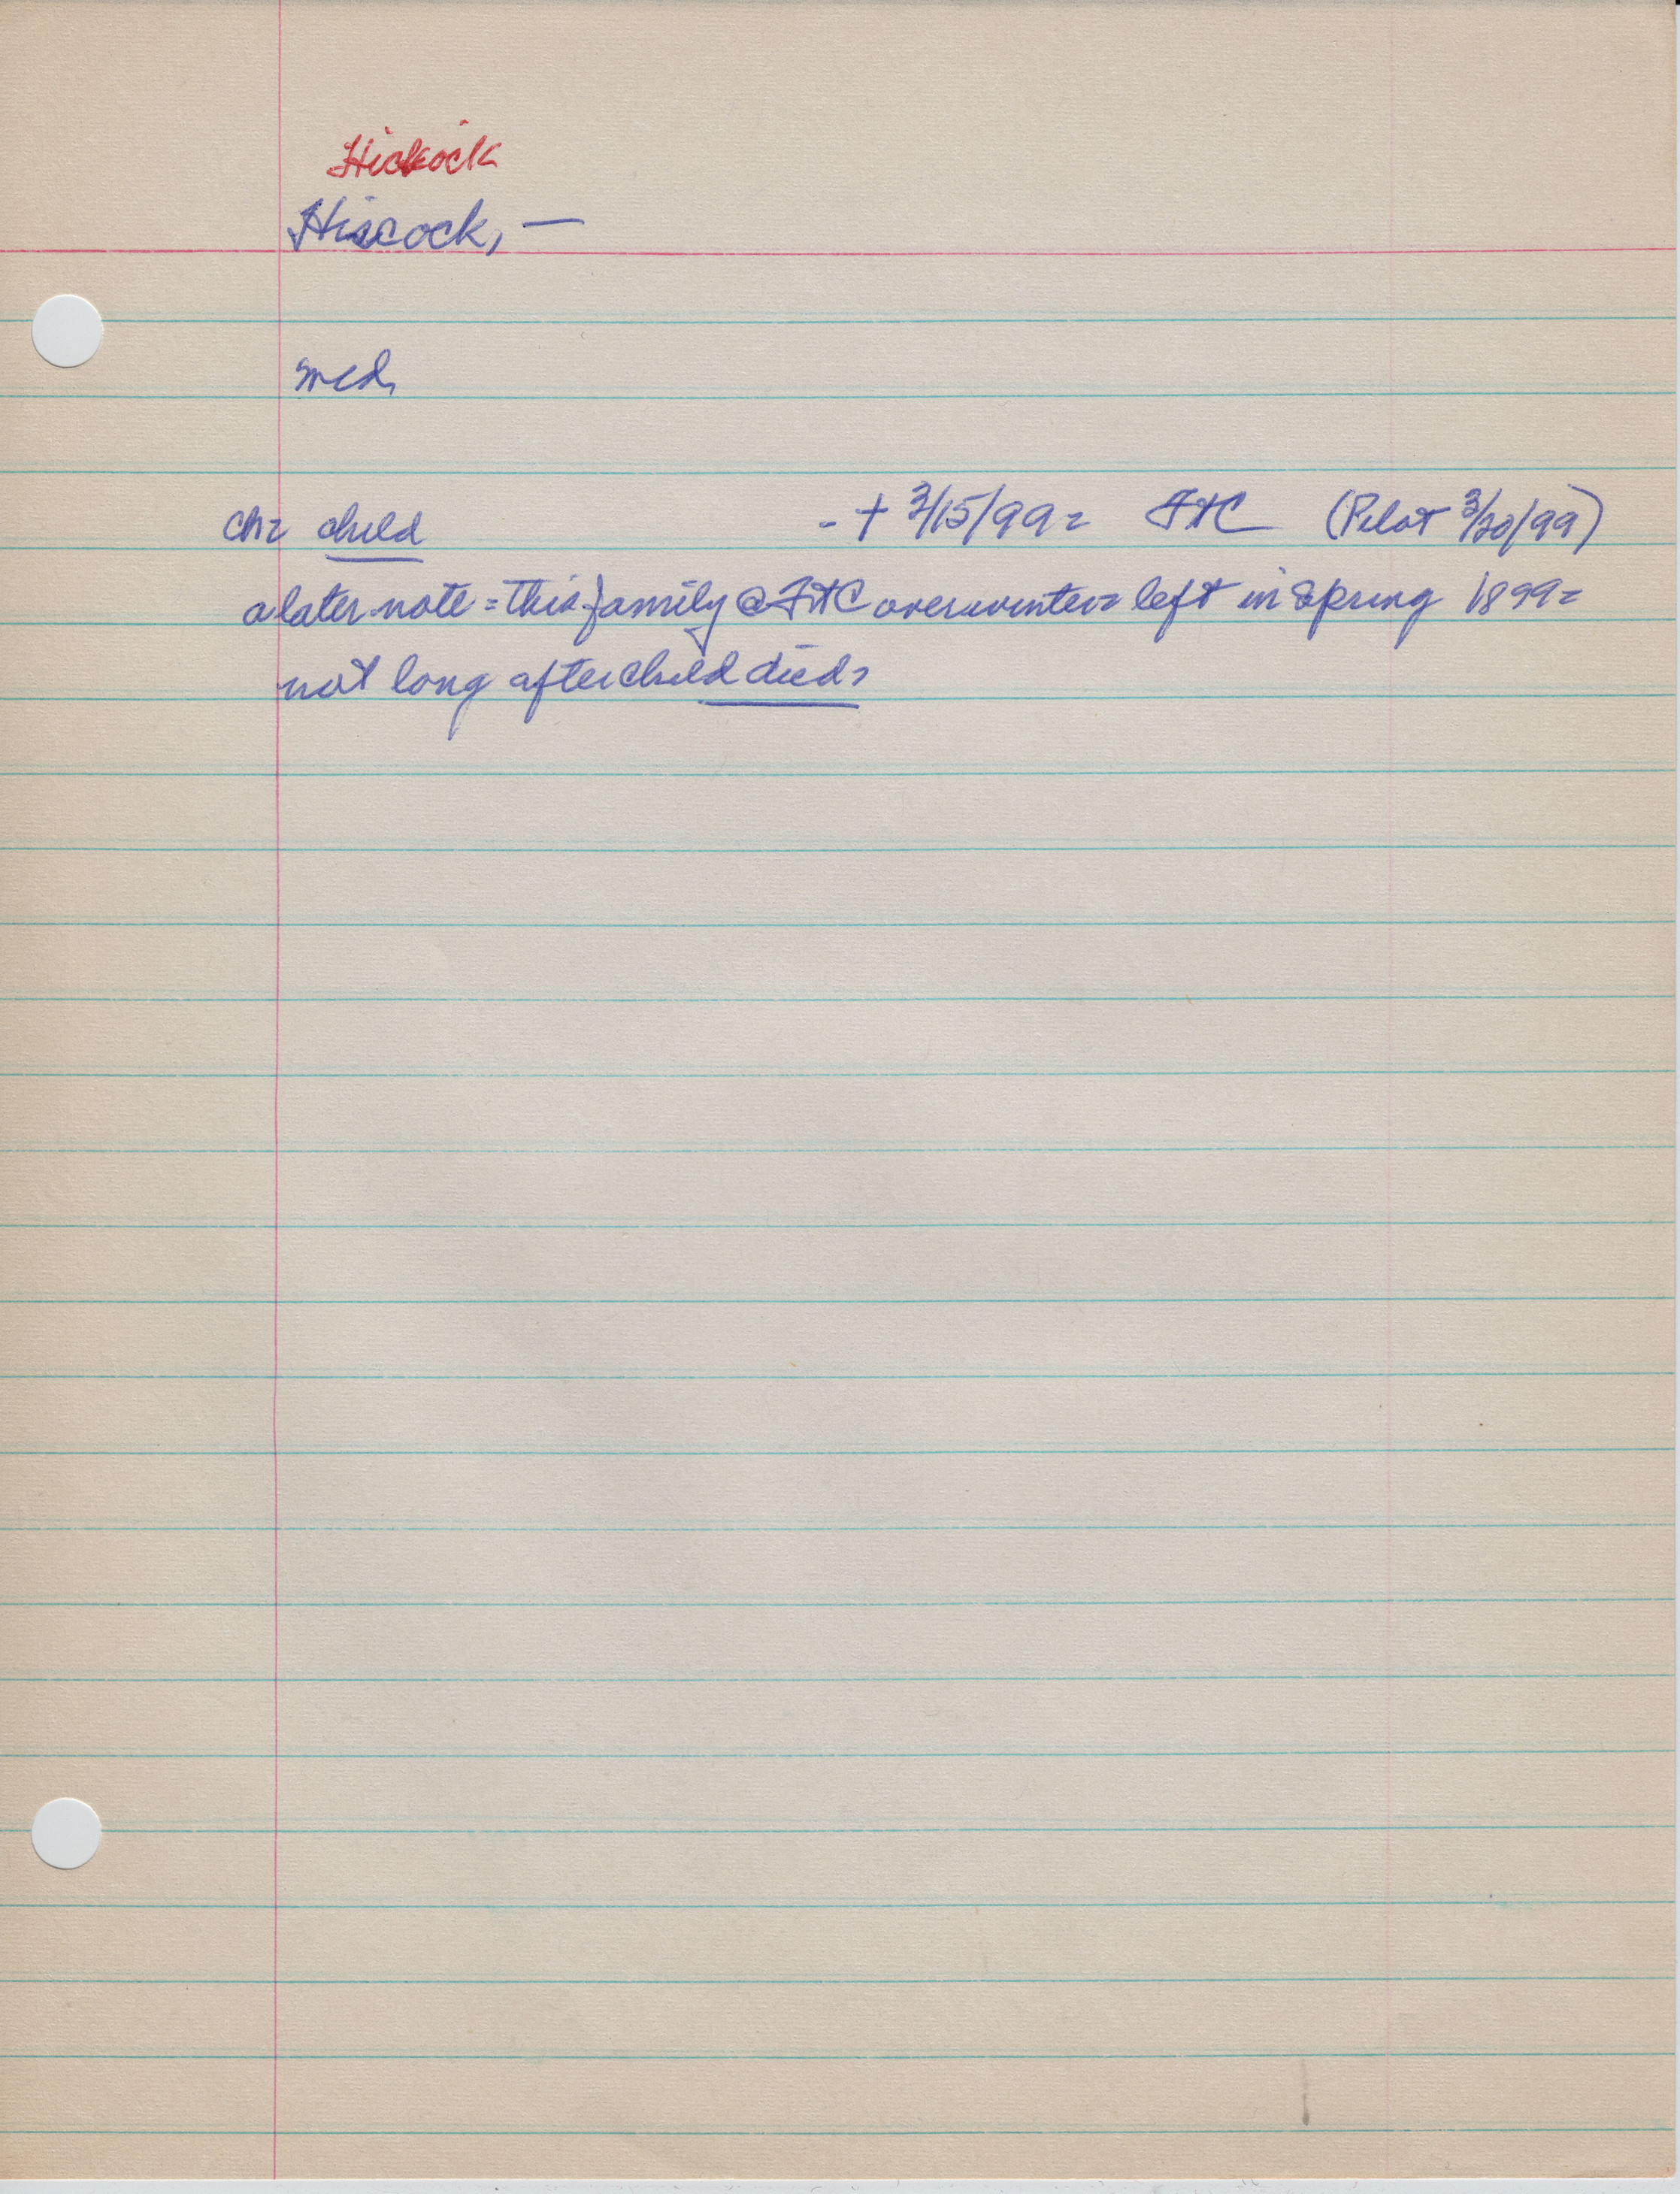 Hickock
Hiscock, —
med,
ch= child - + 3/15/99= FtC (Pilot 3/20/99)
a later note = this family @ FtC overwinter= left in Spring 1899=
not long after child died=